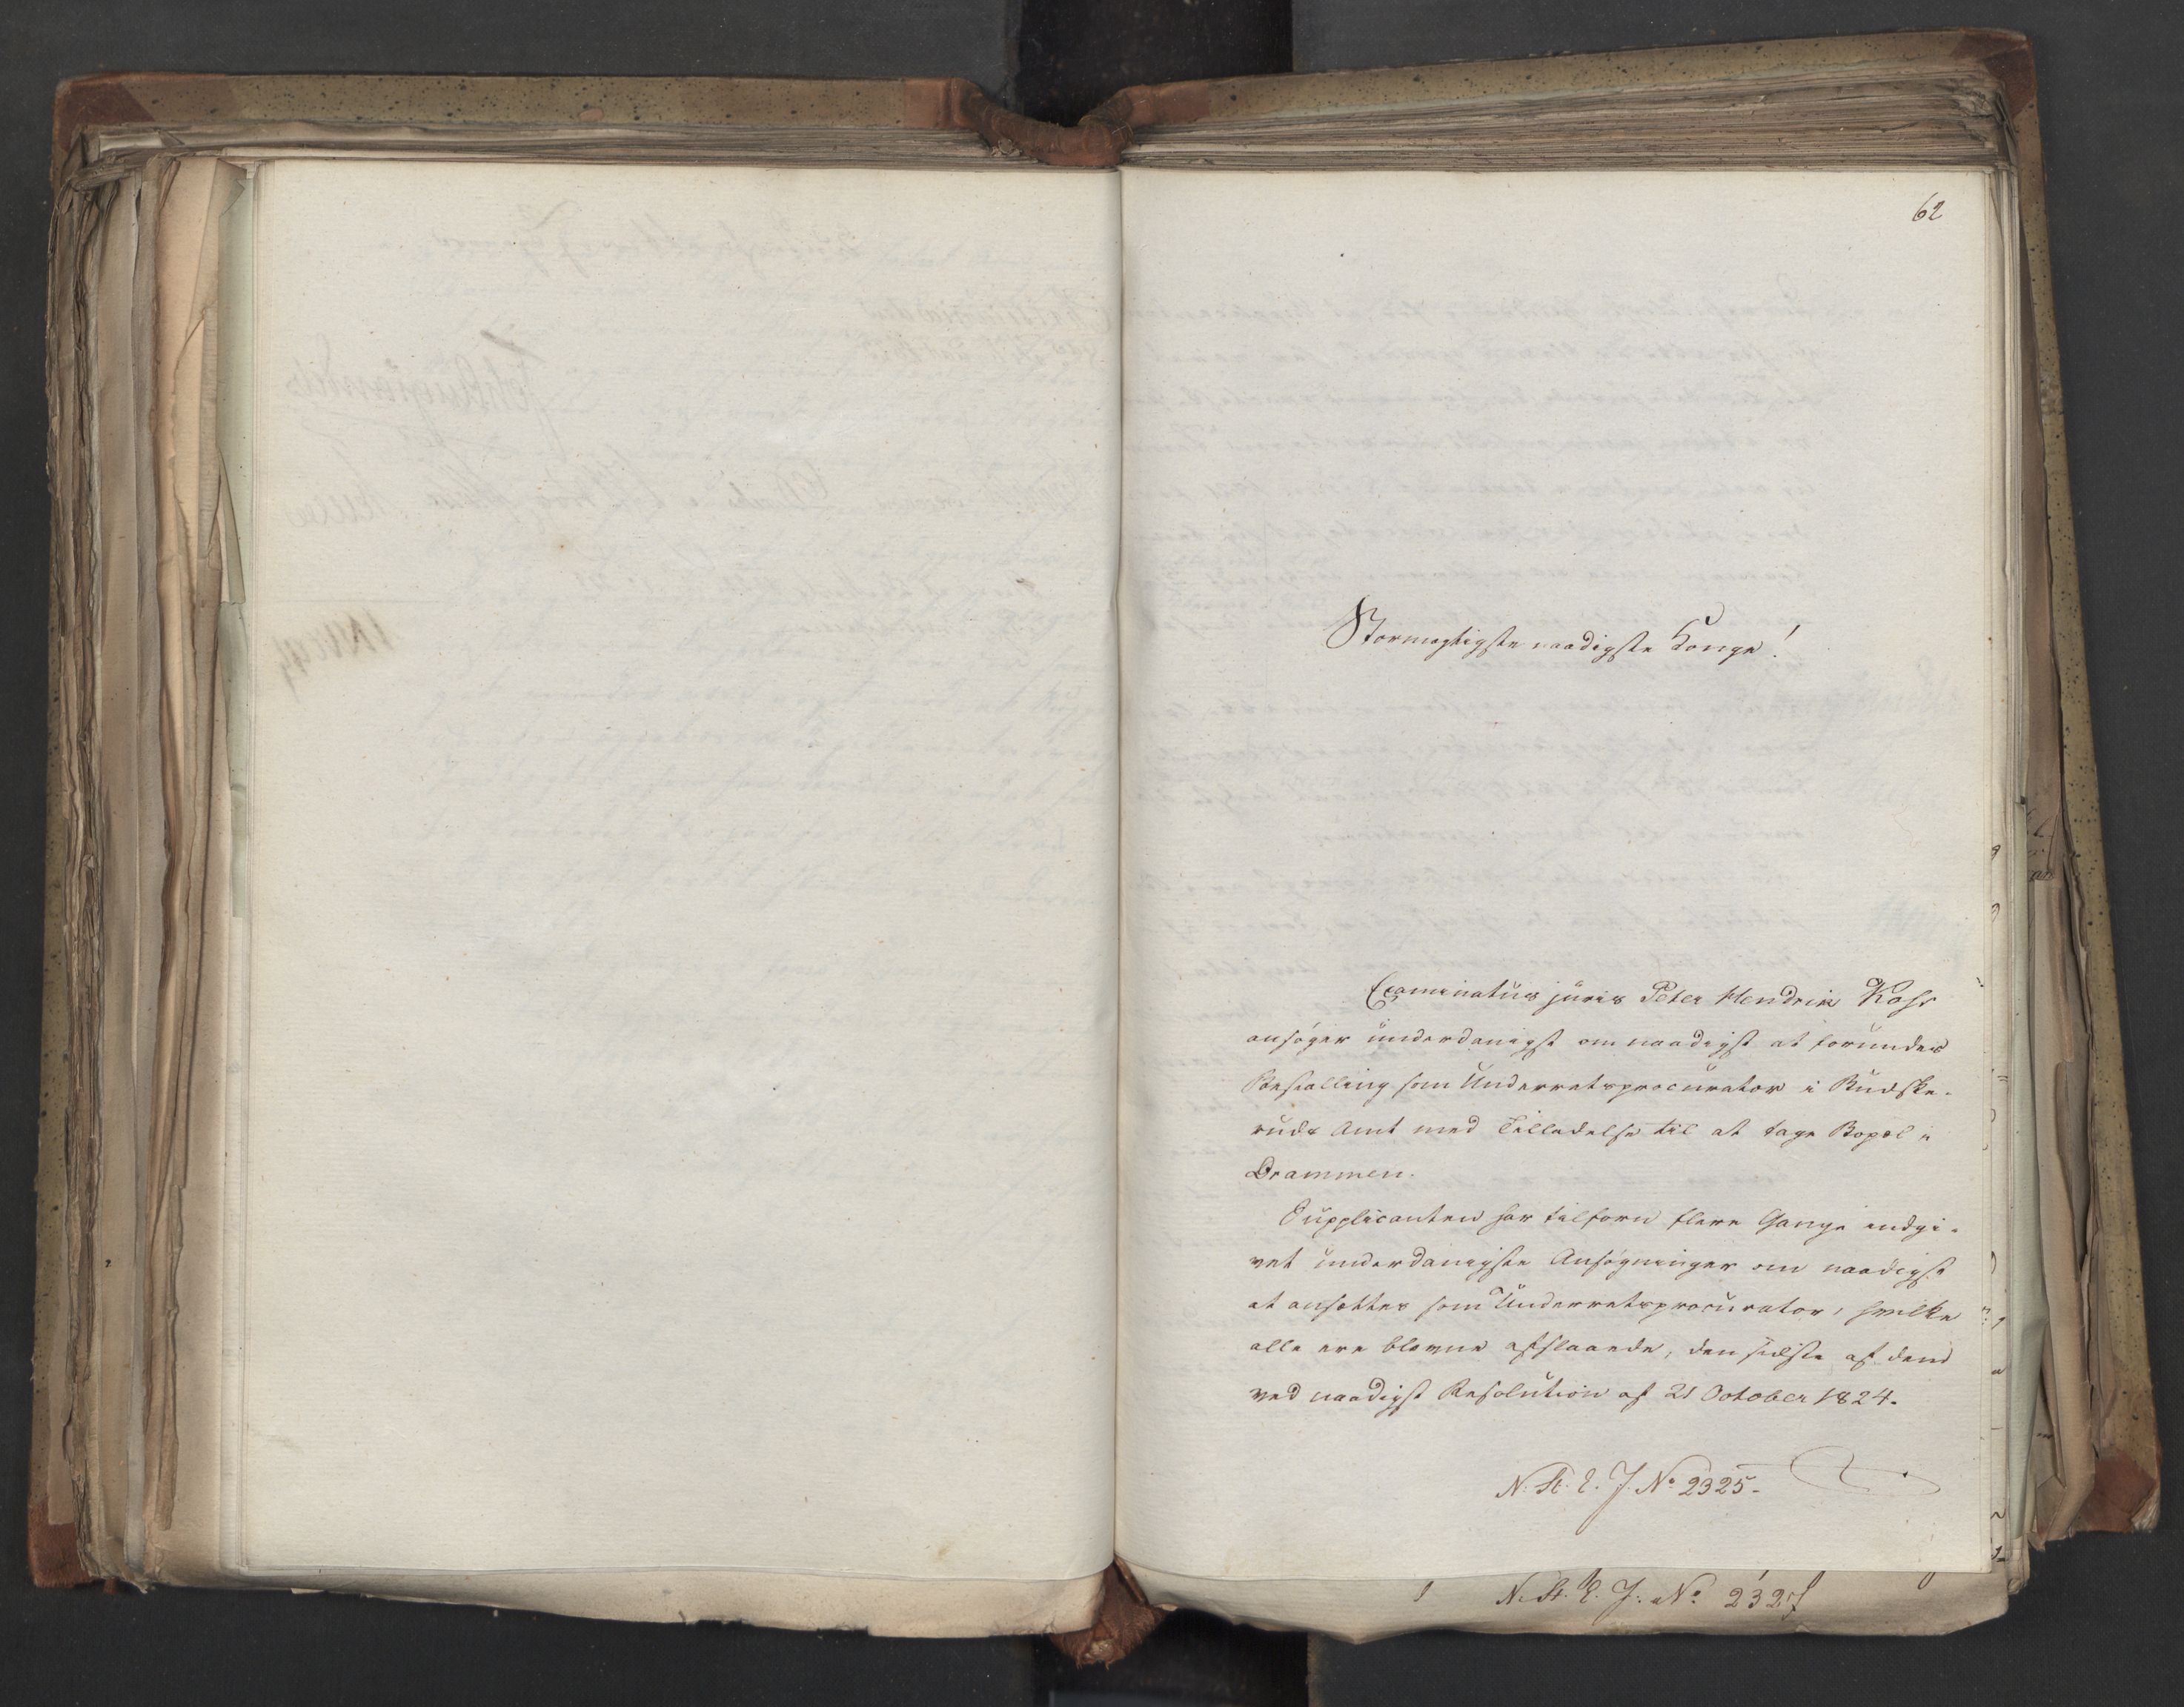 62
Stormægtigste naadigste Konge!
Examinatus juris Peter Hendrik
ansøger underdanigst om naadigst at forundes
Bestalling som Underretsprocurator i Budske-
ruds Amt med Tilladelse til at tage Bopæl i
Drammen.
Supplicanten har tilforn flere Gange indgi-
vet underdanigste Ansøgninger om naadigst
at ansættes som Underretsprocurator, hvilke
alle ere blevne afslaaede, den sidste af dem
ved naadigst Resolution af 21 October 1824.
N. St. E. J. No 2325-
N. St. E. J. No